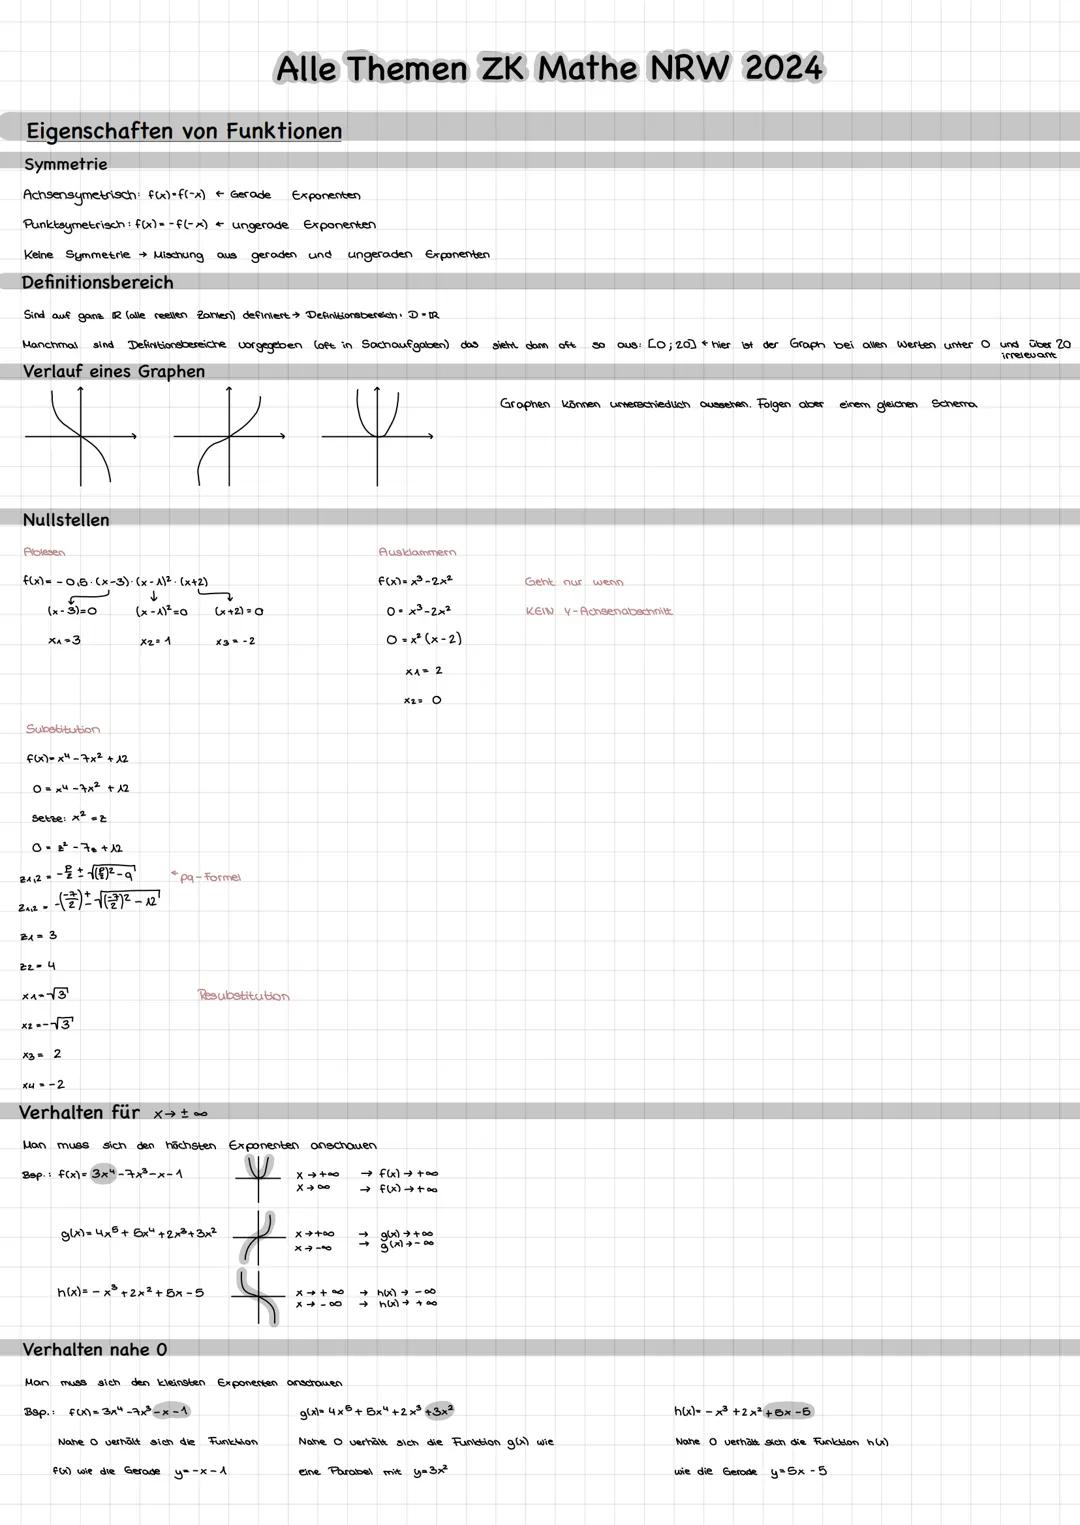 Alle Themen ZK Mathe NRW 2024
Eigenschaften von Funktionen
Symmetrie
Achsensymetrisch: f(x)=f(-x) ← Gerade Exponenten
Punktsymetrisch: f(x)= -f(-x) ← ungerade Exponenten
Keine Symmetrie → Mischung aus geraden und ungeraden Exponenten
Definitionsbereich
Sind auf ganz ℝ (alle reellen Zahlen) definiert → Definitionsbereich: D=ℝ
Manchmal sind Definitionsbereiche vorgegeben (oft in Sachaufgaben) das sieht dann oft so aus: [0;20] ← hier ist der Graph bei allen Werten unter 0 und über 20 irrelevant
Verlauf eines Graphen
Graphen können unterschiedlich aussehen. Folgen aber einem gleichen Schema.
Nullstellen
Ablesen
f(x)= -0,5·(x-3)·(x-1)²·(x+2)
(x-3)=0 (x-1)²=0 (x+2)=0
x₁=3 x₂=1 x₃=-2
Ausklammern
f(x)=x³-2x² Geht nur wenn
0=x³-2x² KEIN Y-Achsenabschnitt
0=x²(x-2)
x₁=2
x₂=0
Substitution
f(x)=x⁴-7x²+12
0=x⁴-7x²+12
Setze: x²=z
0=z²-7z+12
z₁,₂ = -p/2 ± √((p/2)²-q) ← pq-Formel
z₁,₂ = -(-7/2) ± √((-7/2)²-12)
z₁=3
z₂=4
x₁=√3 Resubstitution
x₂=-√3
x₃=2
x₄=-2
Verhalten für x→±∞
Man muss sich den höchsten Exponenten anschauen
Bsp.: f(x)=3x⁴-7x³-x-1 x→+∞ → f(x)→+∞
x→∞ → f(x)→+∞
g(x)=4x⁵+5x⁴+2x³+3x² x→+∞ → g(x)→+∞
x→-∞ → g(x)→-∞
h(x)=-x³+2x²+5x-5 x→+∞ → h(x)→-∞
x→-∞ → h(x)→+∞
Verhalten nahe 0
Man muss sich den kleinsten Exponenten anschauen
Bsp.: f(x)=3x⁴-7x³-x-1 g(x)=4x⁵+5x⁴+2x³+3x² h(x)=-x³+2x²+5x-5
Nahe 0 verhält sich die Funktion Nahe 0 verhält sich die Funktion g(x) wie Nahe 0 verhält sich die Funktion h(x)
f(x) wie die Gerade y=-x-1 eine Parabel mit y=3x² wie die Gerade y=5x-5